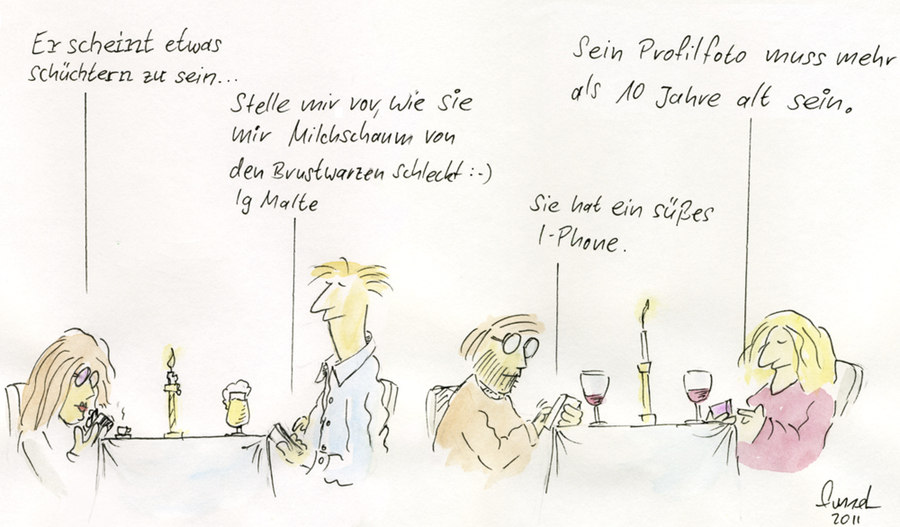 Er scheint etwas
schüchtern zu sein...
Stelle mir vor, wie sie
mir Milchschaum von
den Brustwarzen schleckt :-)
lg Malte
Sie hat ein süßes
I-Phone.
Sein Profilfoto muss mehr
als 10 Jahre alt sein.
2011